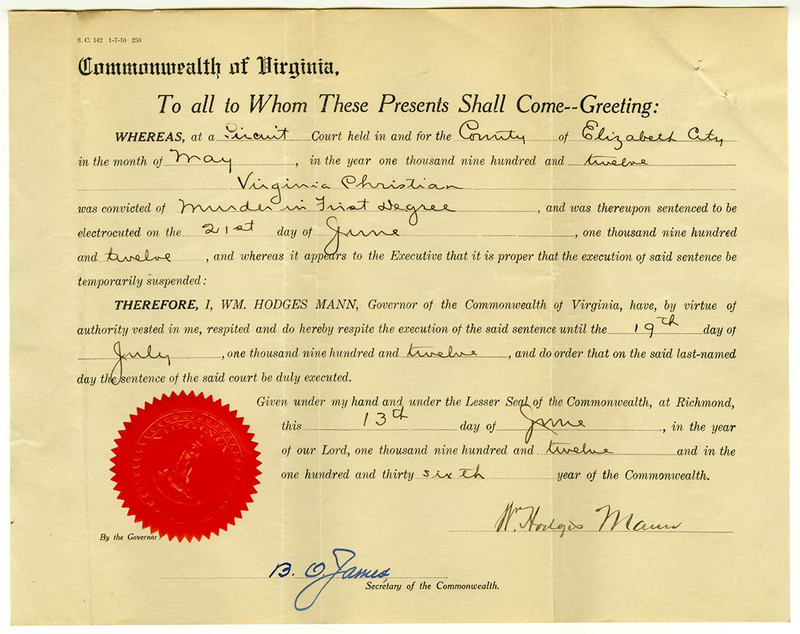 S. C. 142 1-7-10 250
Commonwealth of Virginia,
To all to Whom These Presents Shall Come--Greeting:
WHEREAS, at a Circuit Court held in and for the County of Elizabeth City
in the month of May, in the year one thousand nine hundred and twelve
Virginia Christian
was convicted of Murder in First Degree, and was thereupon sentenced to be
electrocuted on the 21st day of June, one thousand nine hundred
and twelve, and whereas it appears to the Executive that it is proper that the execution of said sentence be
temporarily suspended:
THEREFORE, I, WM. HODGES MANN, Governor of the Commonwealth of Virginia, have, by virtue of
authority vested in me, respited and do hereby respite the execution of the said sentence until the 19th day of
July, one thousand nine hundred and twelve, and do order that on the said last-named
day the sentence of the said court be duly executed.
Given under my hand and under the Lesser Seal of the Commonwealth, at Richmond,
this 13th day of June, in the year
of our Lord, one thousand nine hundred and twelve and in the
one hundred and thirty sixth year of the Commonwealth.
Wm Hodges Mann
By the Governor
B. O. James,
Secretary of the Commonwealth.